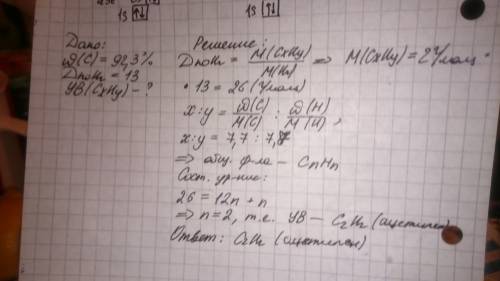 1s ↑↓ 1s ↑↓
Дано:
ω(C) = 92,3%
D по H₂ = 13
УВ (CxHy) - ?
Решение:
D по H₂ = M(CxHy) / M(H₂) => M(CxHy) = 2 г/моль ·
· 13 = 26 (г/моль)
x : y = ω(C) / M(C) : ω(H) / M(H) ,
x : y = 7,7 : 7,7
=> общ. ф-ла – CnHn
Сост. ур-ние:
26 = 12n + n
=> n = 2, т.е. УВ – C₂H₂ (ацетилен)
Ответ: C₂H₂ (ацетилен)